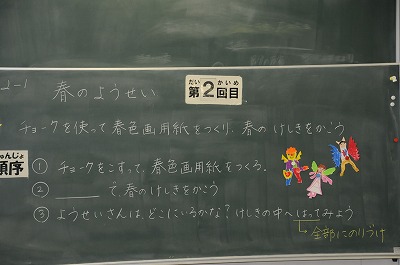 2-1 春のようせい
だい かいめ
第2回目
チョークを使って春色画用紙をつくり、春のけしきをかこう
じゅんじょ
順序
① チョークをこすって、春色画用紙をつくろ。
② ______で、春のけしきをかこう
③ ようせいさんは、どこにいるかな？けしきの中へはってみよう
↳全部にのりづけ